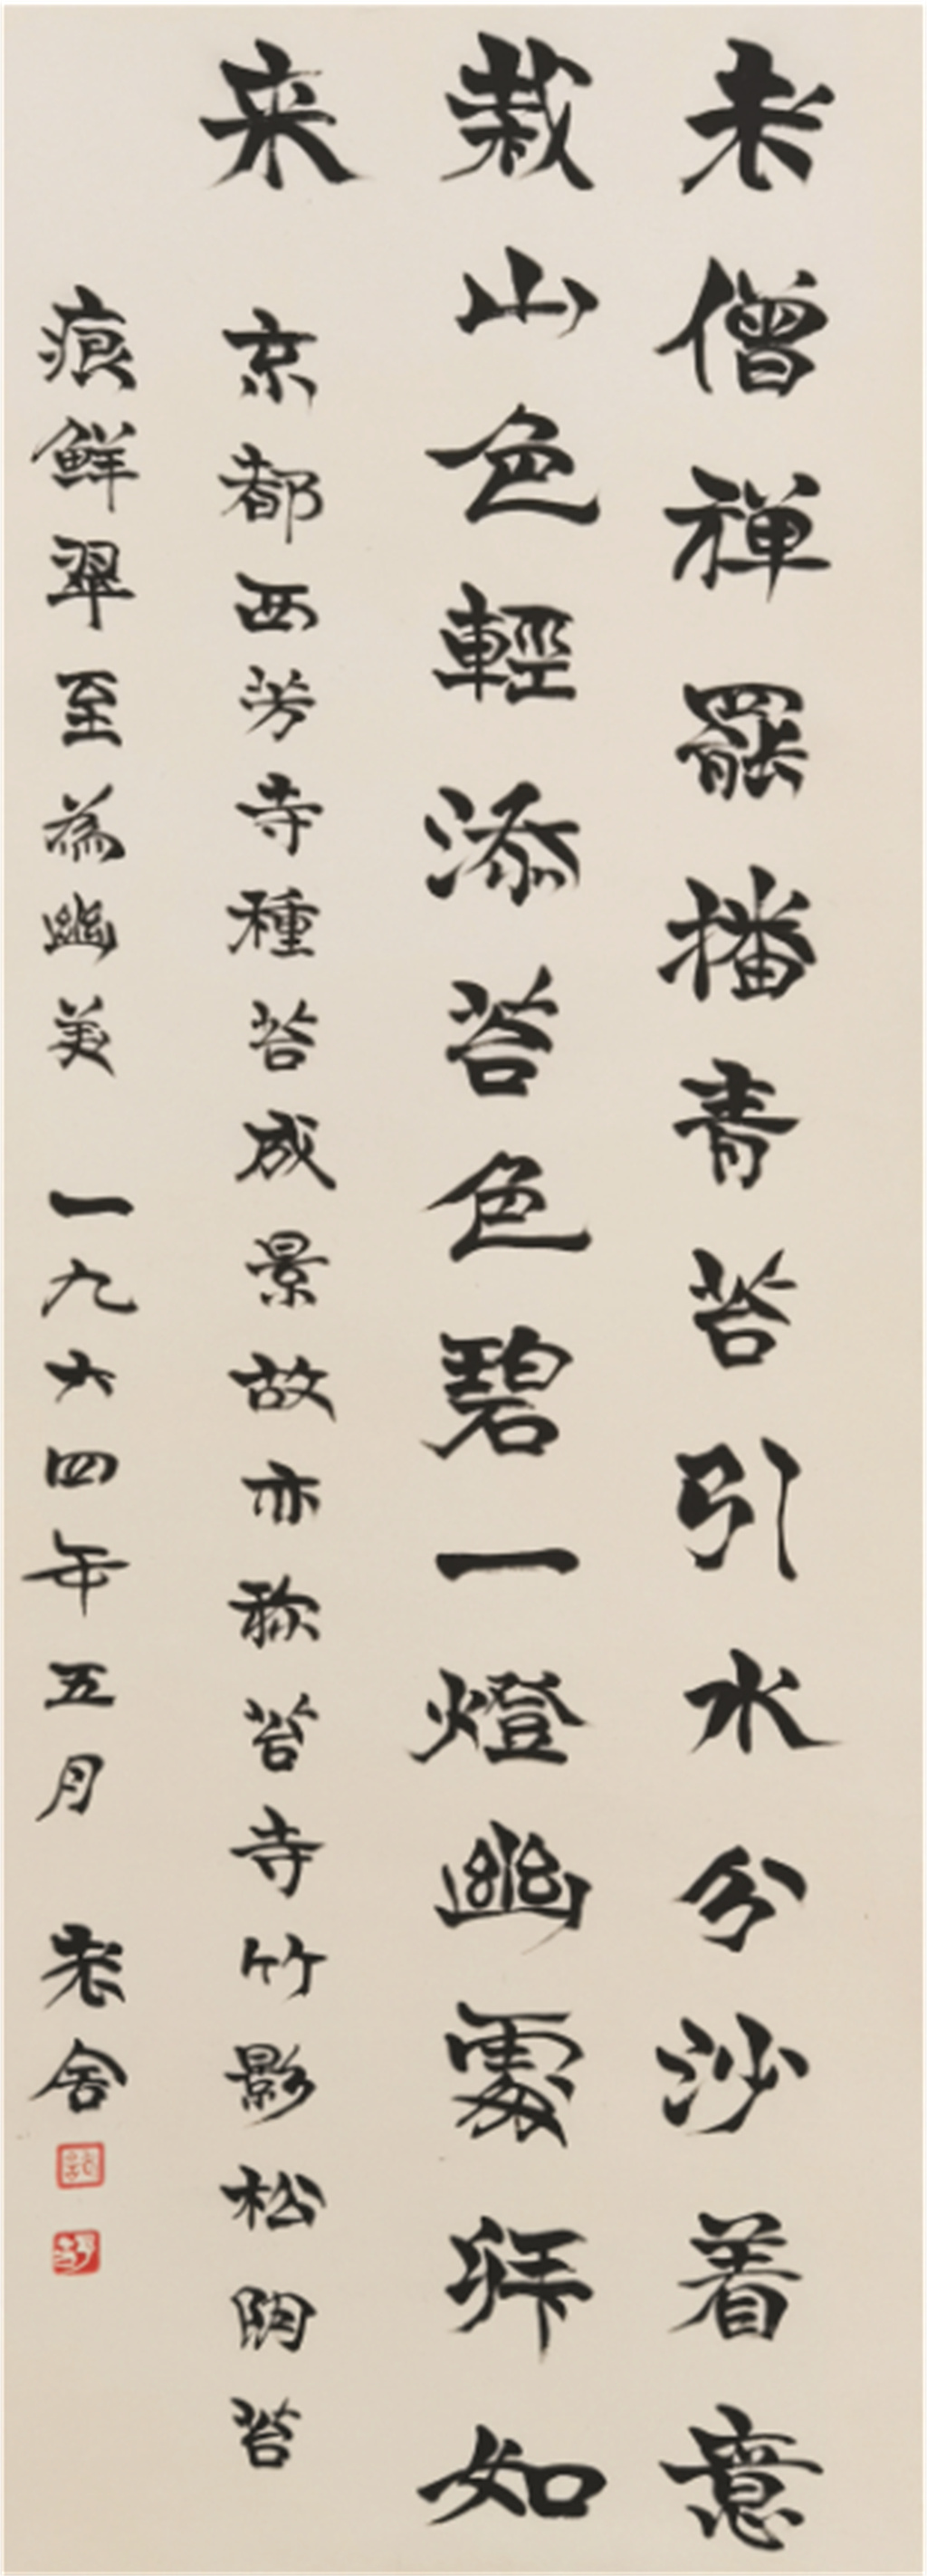 老僧禅罷播青苔引水分沙着意
栽山色輕添苔色碧一燈幽處拜如
来 京都西芳寺種苔成景故亦称苔寺竹影松阴苔
痕鮮翠至為幽美 一九六四年五月 老舍